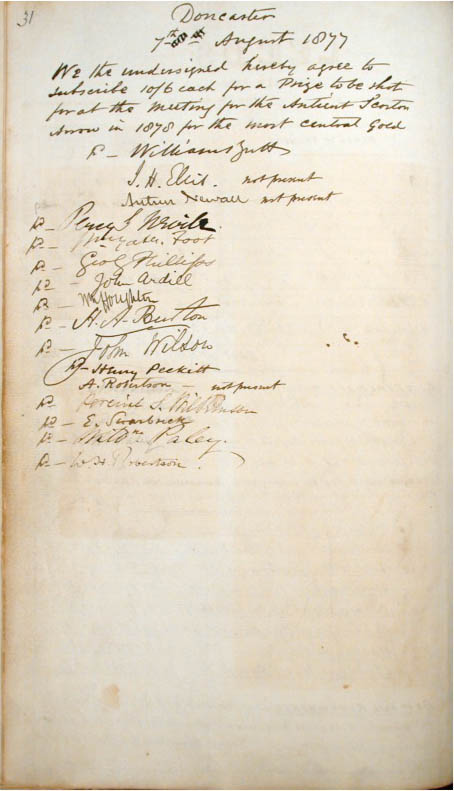 31
Doncaster
7th August 1877
We the undersigned hereby agree to
subscribe 10/6 each for a Prize to be shot
for at the Meeting for the Antient Scorton
Arrow in 1878 for the most central Gold
Pd - William Butt
I. H. Eliis. not present
Arthur Newall not present
Pd - Percy S Nevile.
Pd - Foot
Pd - Geo G Phillips
Pd - John Ardill
Pd - Wm Houghton
Pd - H. A. Burton
Pd - John Wilson
Pd - Henry Peckitt
A. Robertson - not present
Pd - Percival S. Wilkinson
Pd - E. Swarbrick
Pd - Paley.
Pd - W. H. Robertson.